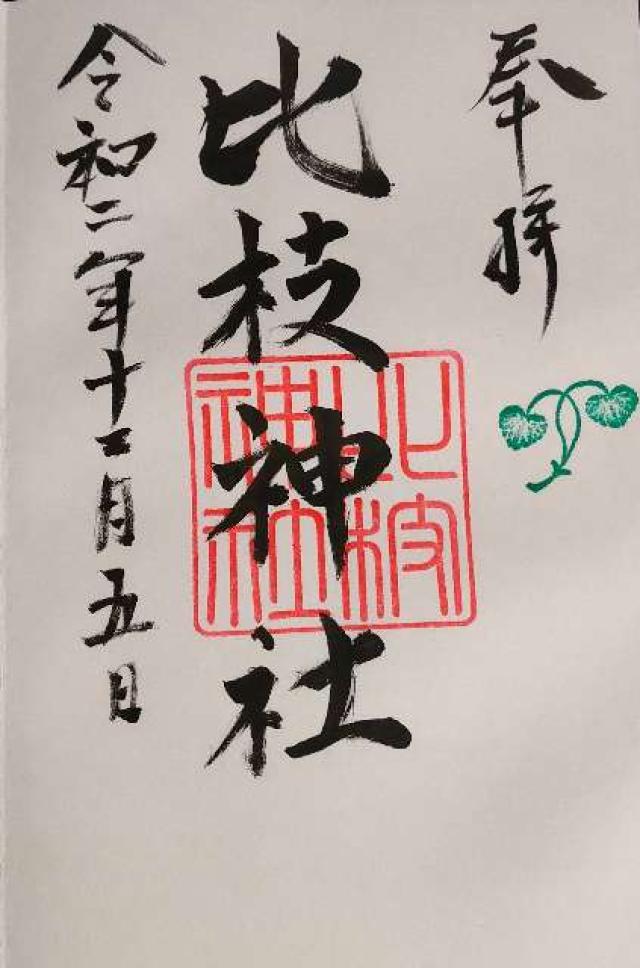 奉拝
比枝神社
比枝
神社
令和二年十二月五日